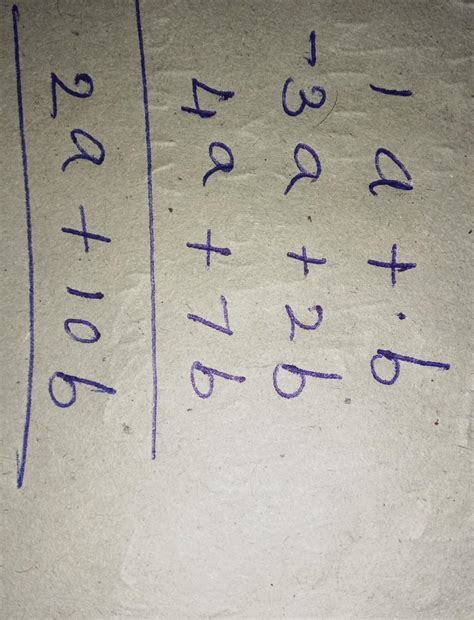 1a + b
-3a + 2b
4a + 7b
2a + 10b